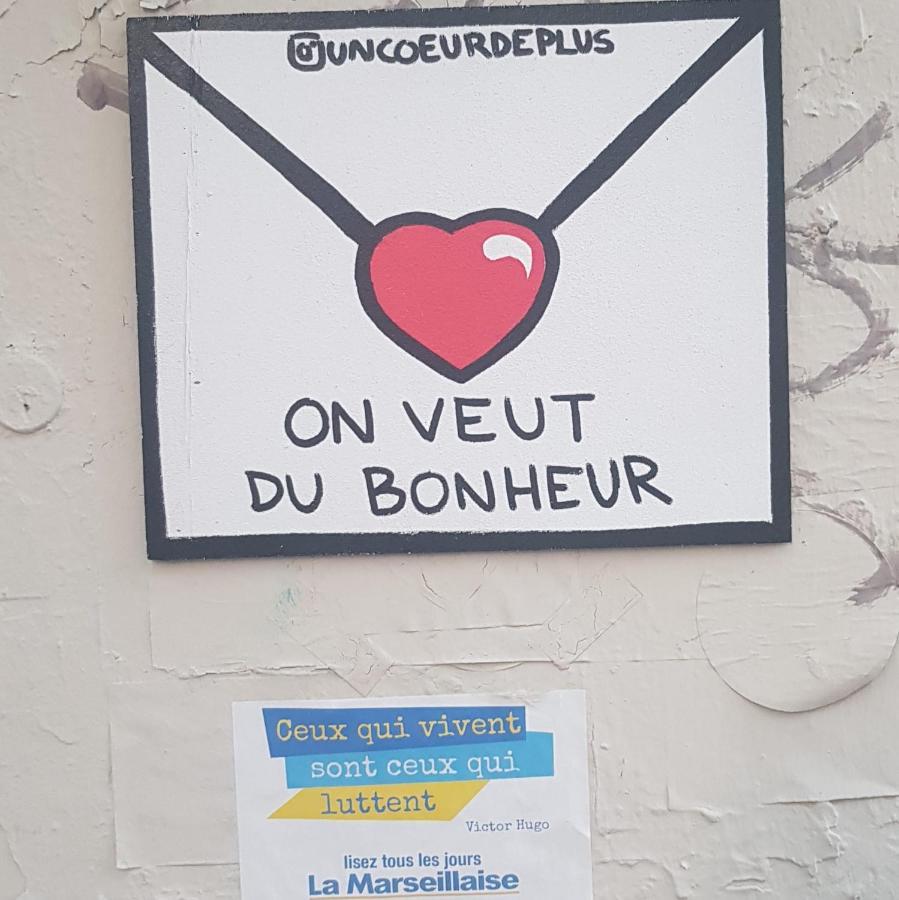 @UNCOEURDEPLUS
ON VEUT
DU BONHEUR
Ceux qui vivent
sont ceux qui
luttent
Victor Hugo
lisez tous les jours
La Marseillaise